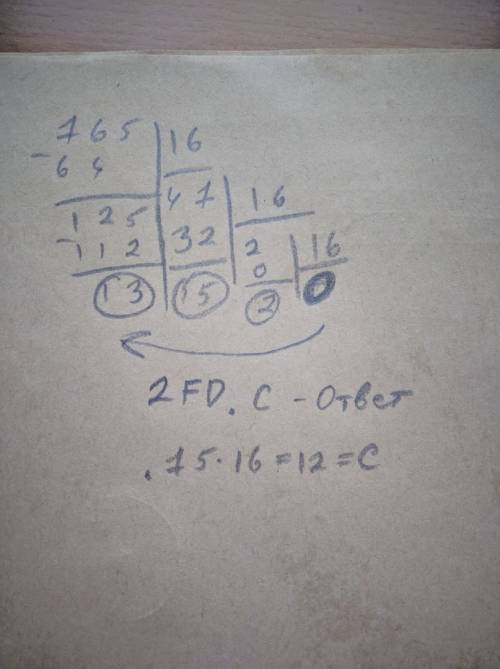 765 16
- 64 47 16
125 32 2 16
- 112 15 0 0
13 2
2FD.C - Ответ
.75·16=12=C